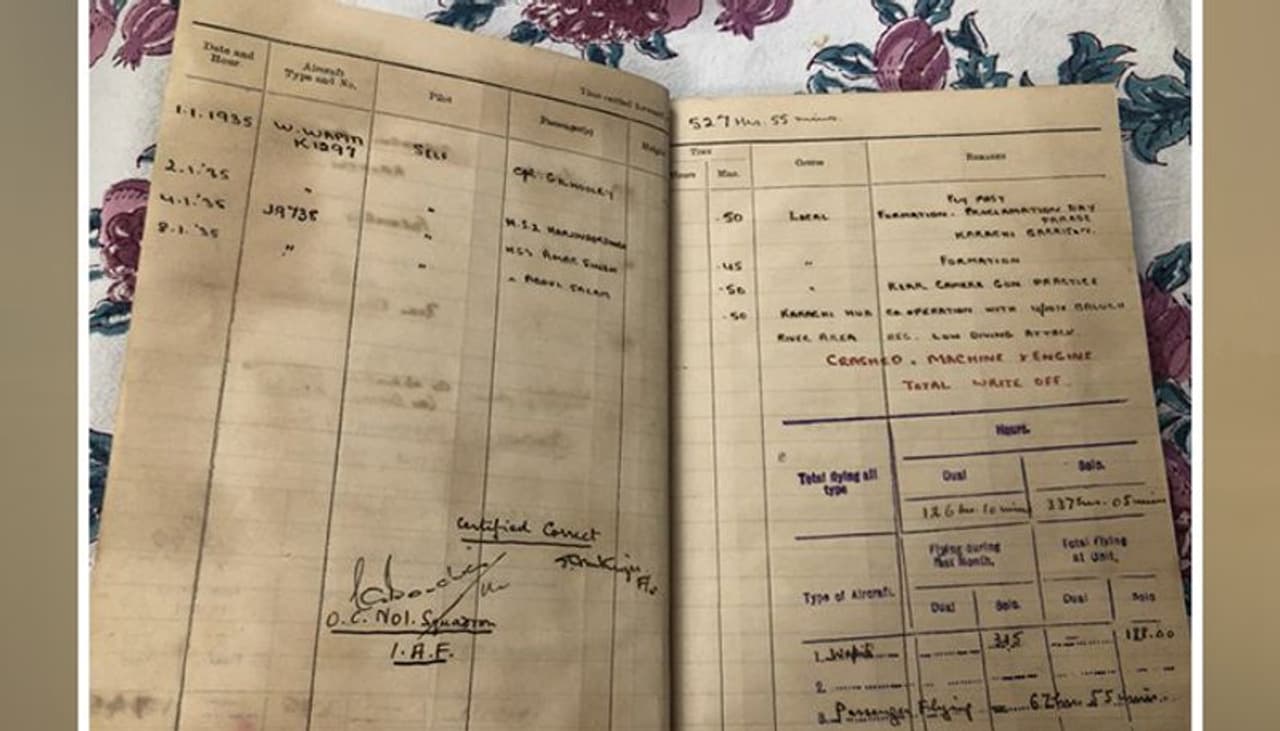 Date and Hour.
Aircraft Type and No.
Pilot
Passenger(s)
Time carried forward
Height
1.1.1935
W. WAPITI K1297
SELF
CPL.
2.1.'35
"
"
H.S.2 HARJINDER SINGH
4.1.'35
J9735
"
HS' AMAR SINGH
8.1.'35
"
"
" ABDUL SALAM
Certified Correct
F/O
O.C. No1. Squadron
I.A.F.
527 Hrs. 55 mins.
Time
Hours
Min.
Course
Remarks
.50
LOCAL
FLY PAST
FORMATION. PROCLAMATION DAY
PARADE
KARACHI GARRISON.
.45
"
FORMATION
.50
"
REAR CAMERA GUN PRACTICE
.50
KARACHI HUB
CO.OPERATION WITH BALUCH
RIVER AREA
REG. LOW DIVING ATTACK.
CRASHED. MACHINE & ENGINE
TOTAL WRITE OFF.
Hours.
Total flying all type
Dual
Solo.
126 hrs. 10 mins
337 hrs. 05 mins
Type of Aircraft.
Flying during Month.
Total Flying at Unit.
Dual
Solo.
Dual
Solo
1. Wapiti
188.00
2.
3. Passenger Flying 62 hrs 55 mins.